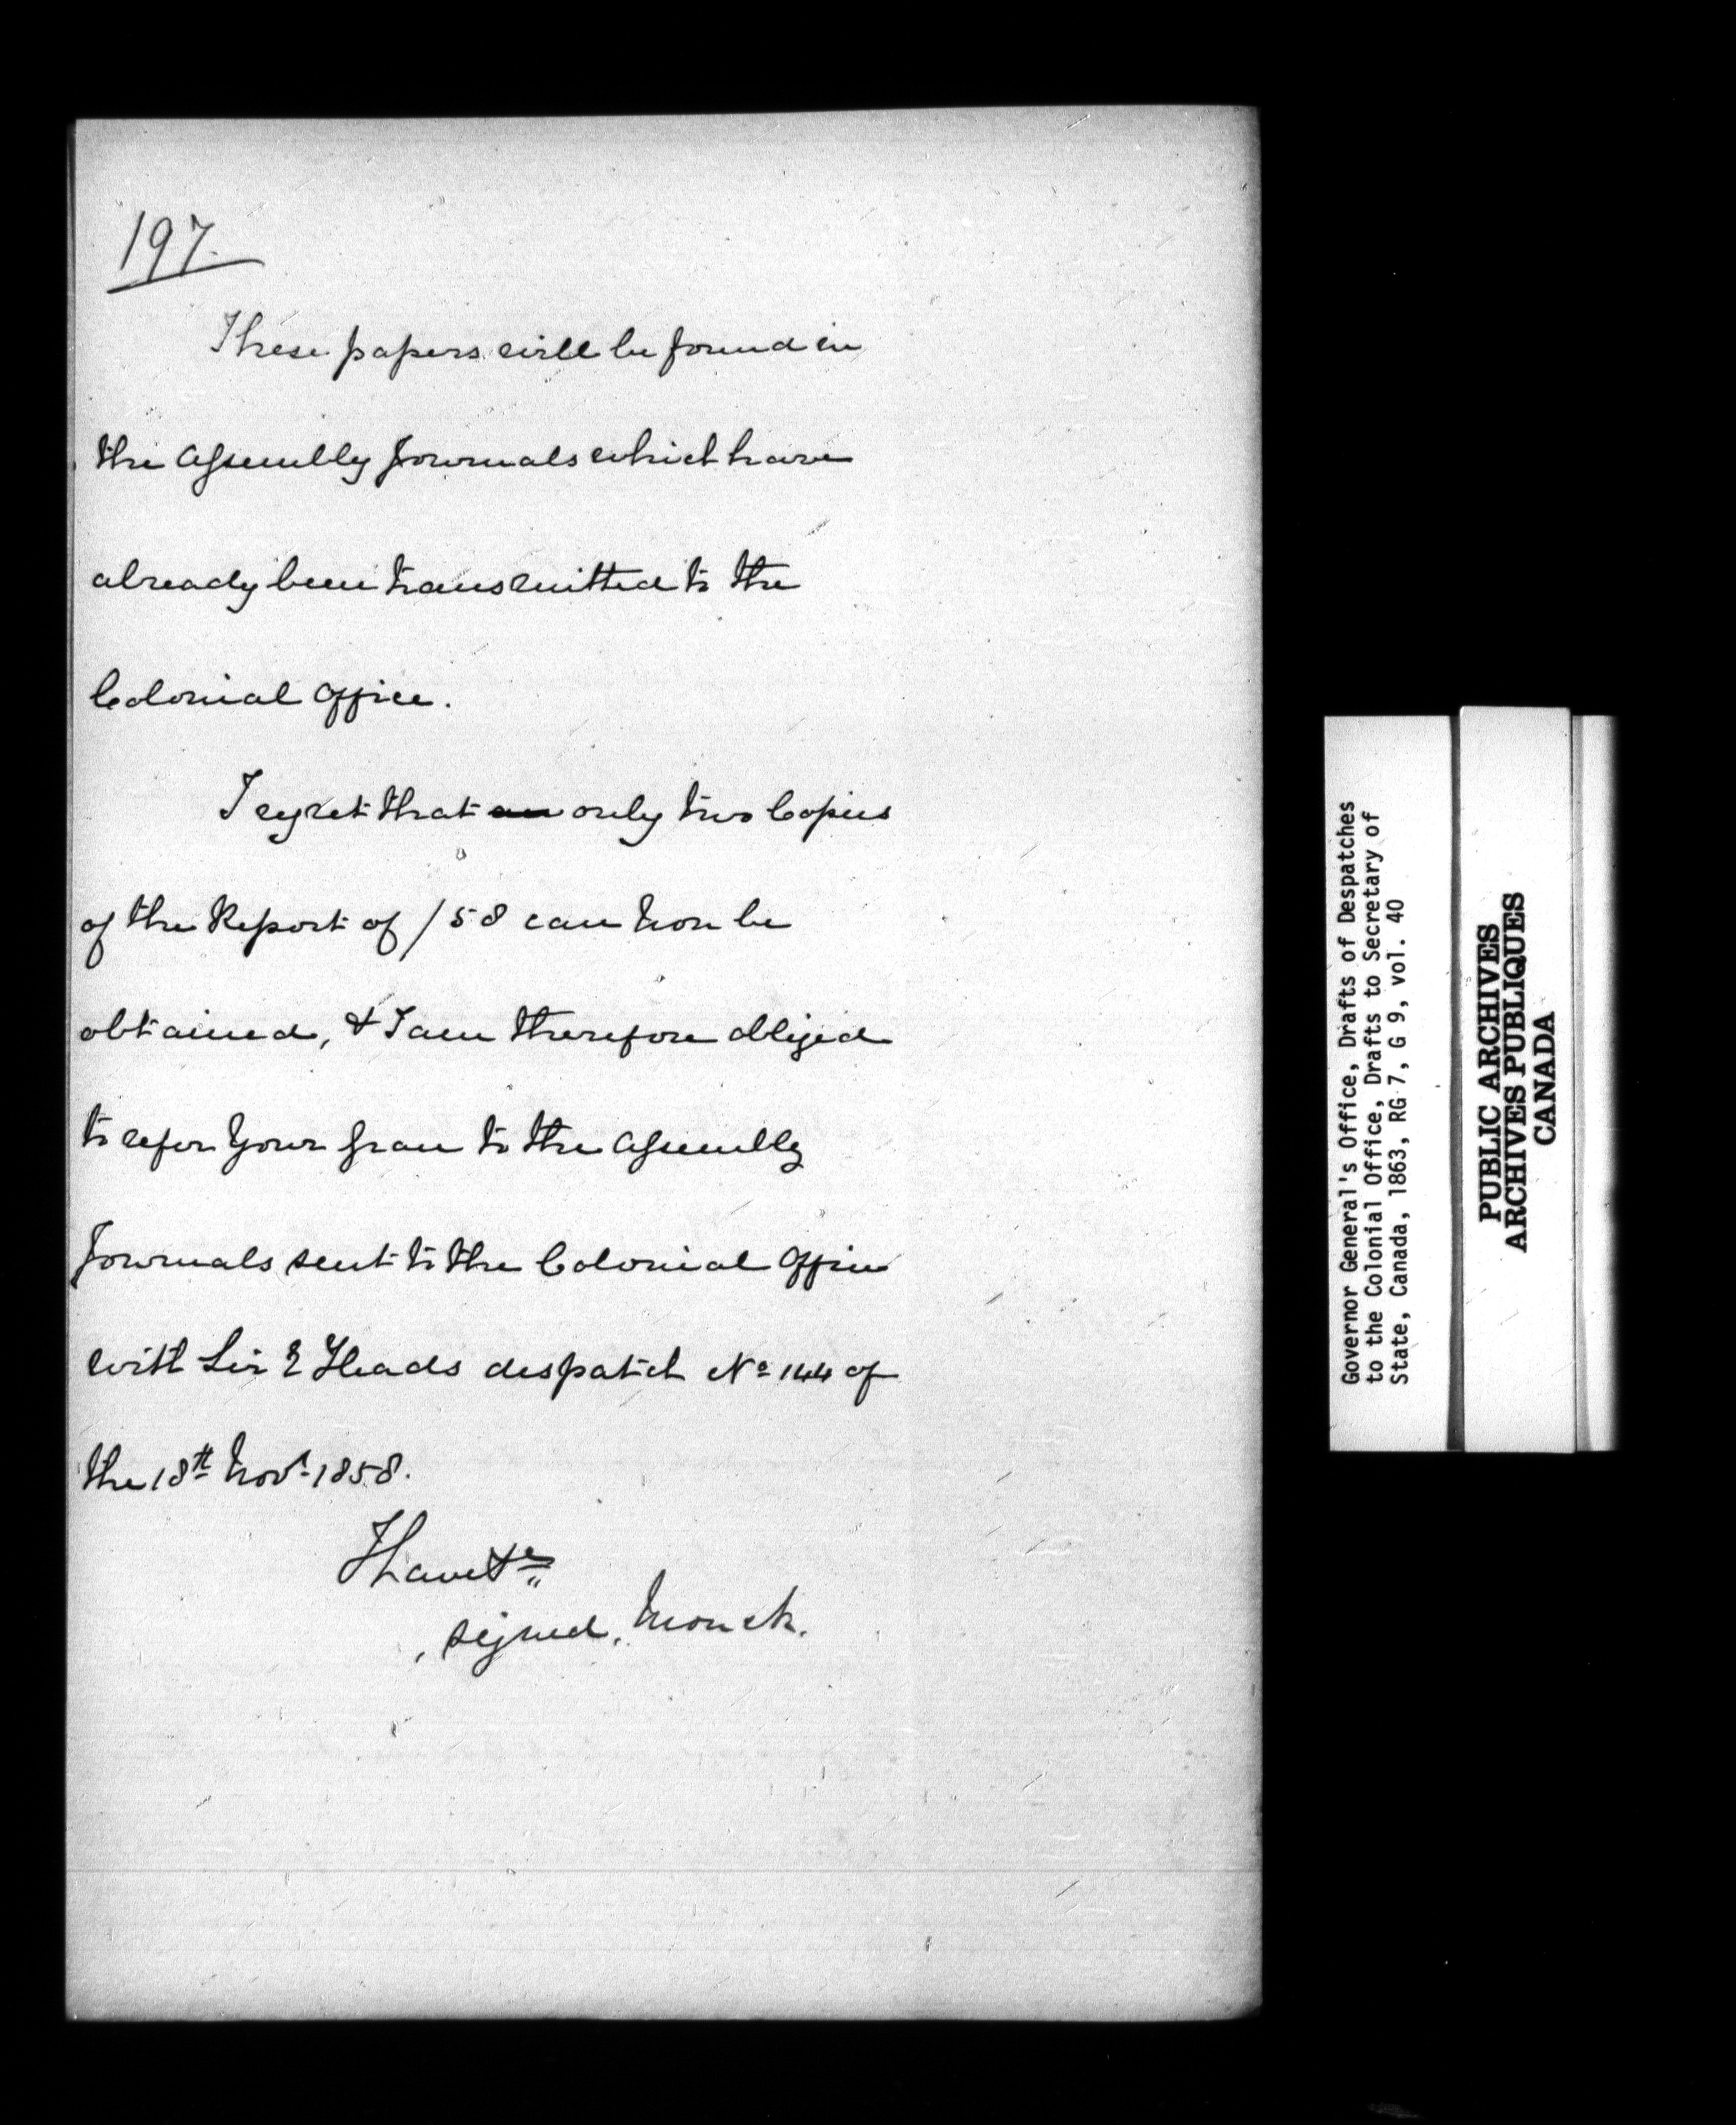 197.
These papers will be found in
the Assembly Journals which have
already been transmitted to the
Colonial Office.
I regret that an only two Copies
of the Report of /58 can now be
obtained, & I am therefore obliged
to refer Your Grace to the Assembly
Journals sent to the Colonial Office
with Sir E Heads despatch No 144 of
the 18th Novr 1858.
I have &c
signed, Monck.
Governor General's Office, Drafts of Despatches
to the Colonial Office, Drafts to Secretary of
State, Canada, 1863, RG 7, G 9, vol. 40
PUBLIC ARCHIVES
ARCHIVES PUBLIQUES
CANADA